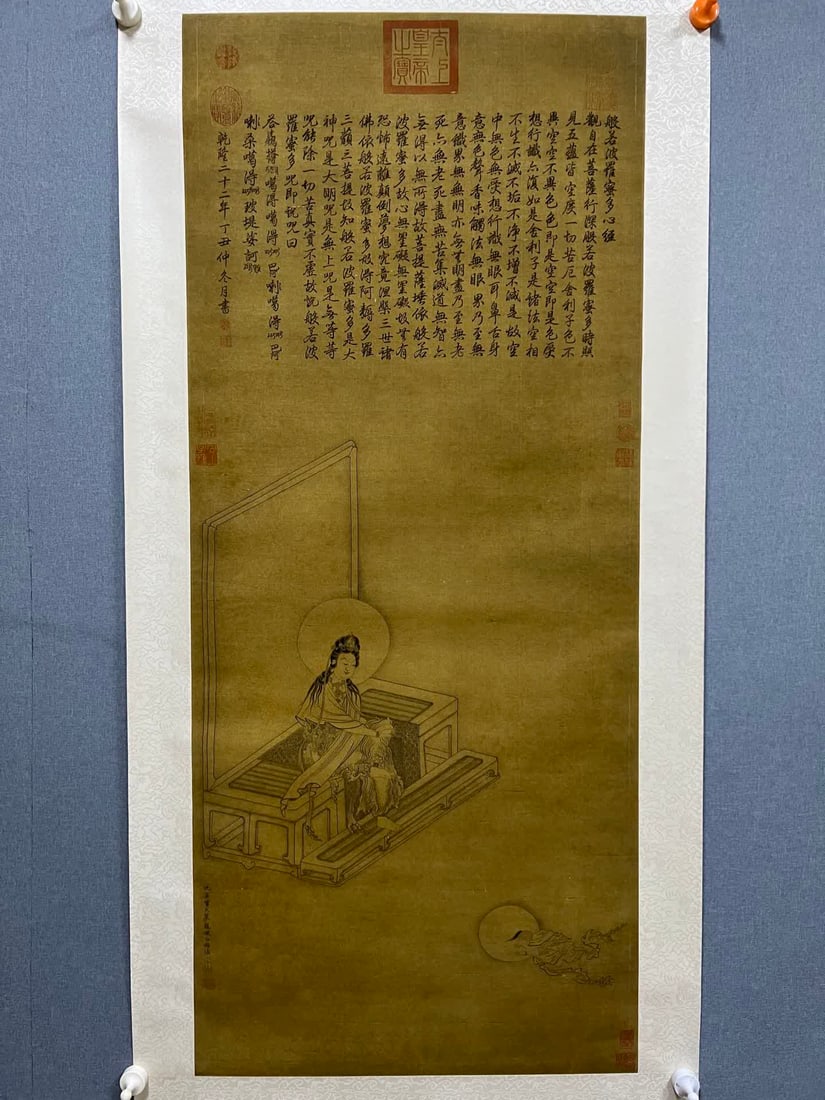 太上皇帝之寶
般若波羅蜜多心經
觀自在菩薩行深般若波羅蜜多時照
見五蘊皆空度一切苦厄舍利子色不
異空空不異色色即是空空即是色受
想行識亦復如是舍利子是諸法空相
不生不滅不垢不淨不增不減是故空
中無色無受想行識無眼耳鼻舌身
意無色聲香味觸法無眼界乃至無
意識界無無明亦無無明盡乃至無老
死亦無老死盡無苦集滅道無智亦
無得以無所得故菩提薩埵依般若
波羅蜜多故心無罣礙無罣礙故無有
恐怖遠離顛倒夢想究竟涅槃三世諸
佛依般若波羅蜜多故得阿耨多羅
三藐三菩提故知般若波羅蜜多是大
神咒是大明咒是無上咒是無等等
咒能除一切苦真實不虛故說般若波
羅蜜多咒即說咒曰
噶得噶得巴喇噶得巴
喇桑噶得玻堤娑訶
乾隆二十二年丁丑仲冬月書